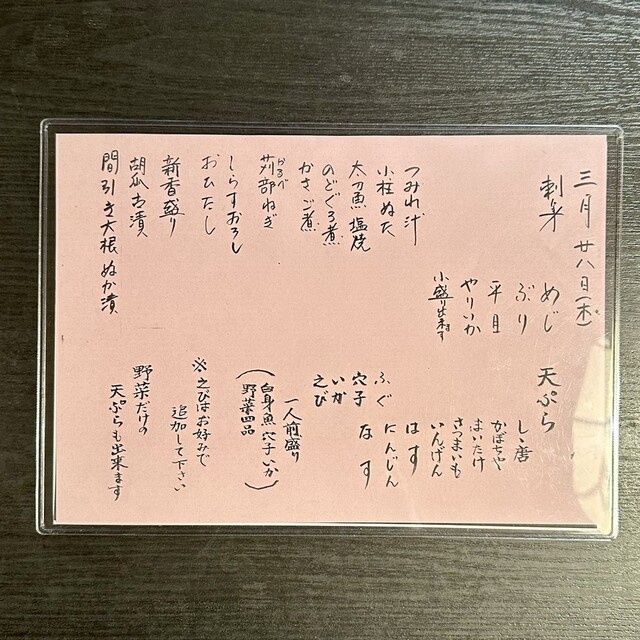 三月廿八日(木)
刺身
めじ
ぶり
平目
やりいか
小盛り出来ます
つみれ汁
小柱ぬた
太刀魚塩焼
のどぐろ煮
かさご煮
かるべ
苅部ねぎ
しらすおろし
おひたし
新香盛り
胡瓜古漬
間引き大根ぬか漬
天ぷら
しゝ唐
かぼちゃ
まいたけ
さつまいも
いんげん
はす
にんじん
なす
ふぐ
穴子
いか
えび
一人前盛り
(白身魚 穴子 いか
野菜四品)
※えびはお好みで
追加して下さい
野菜だけの
天ぷらも出来ます